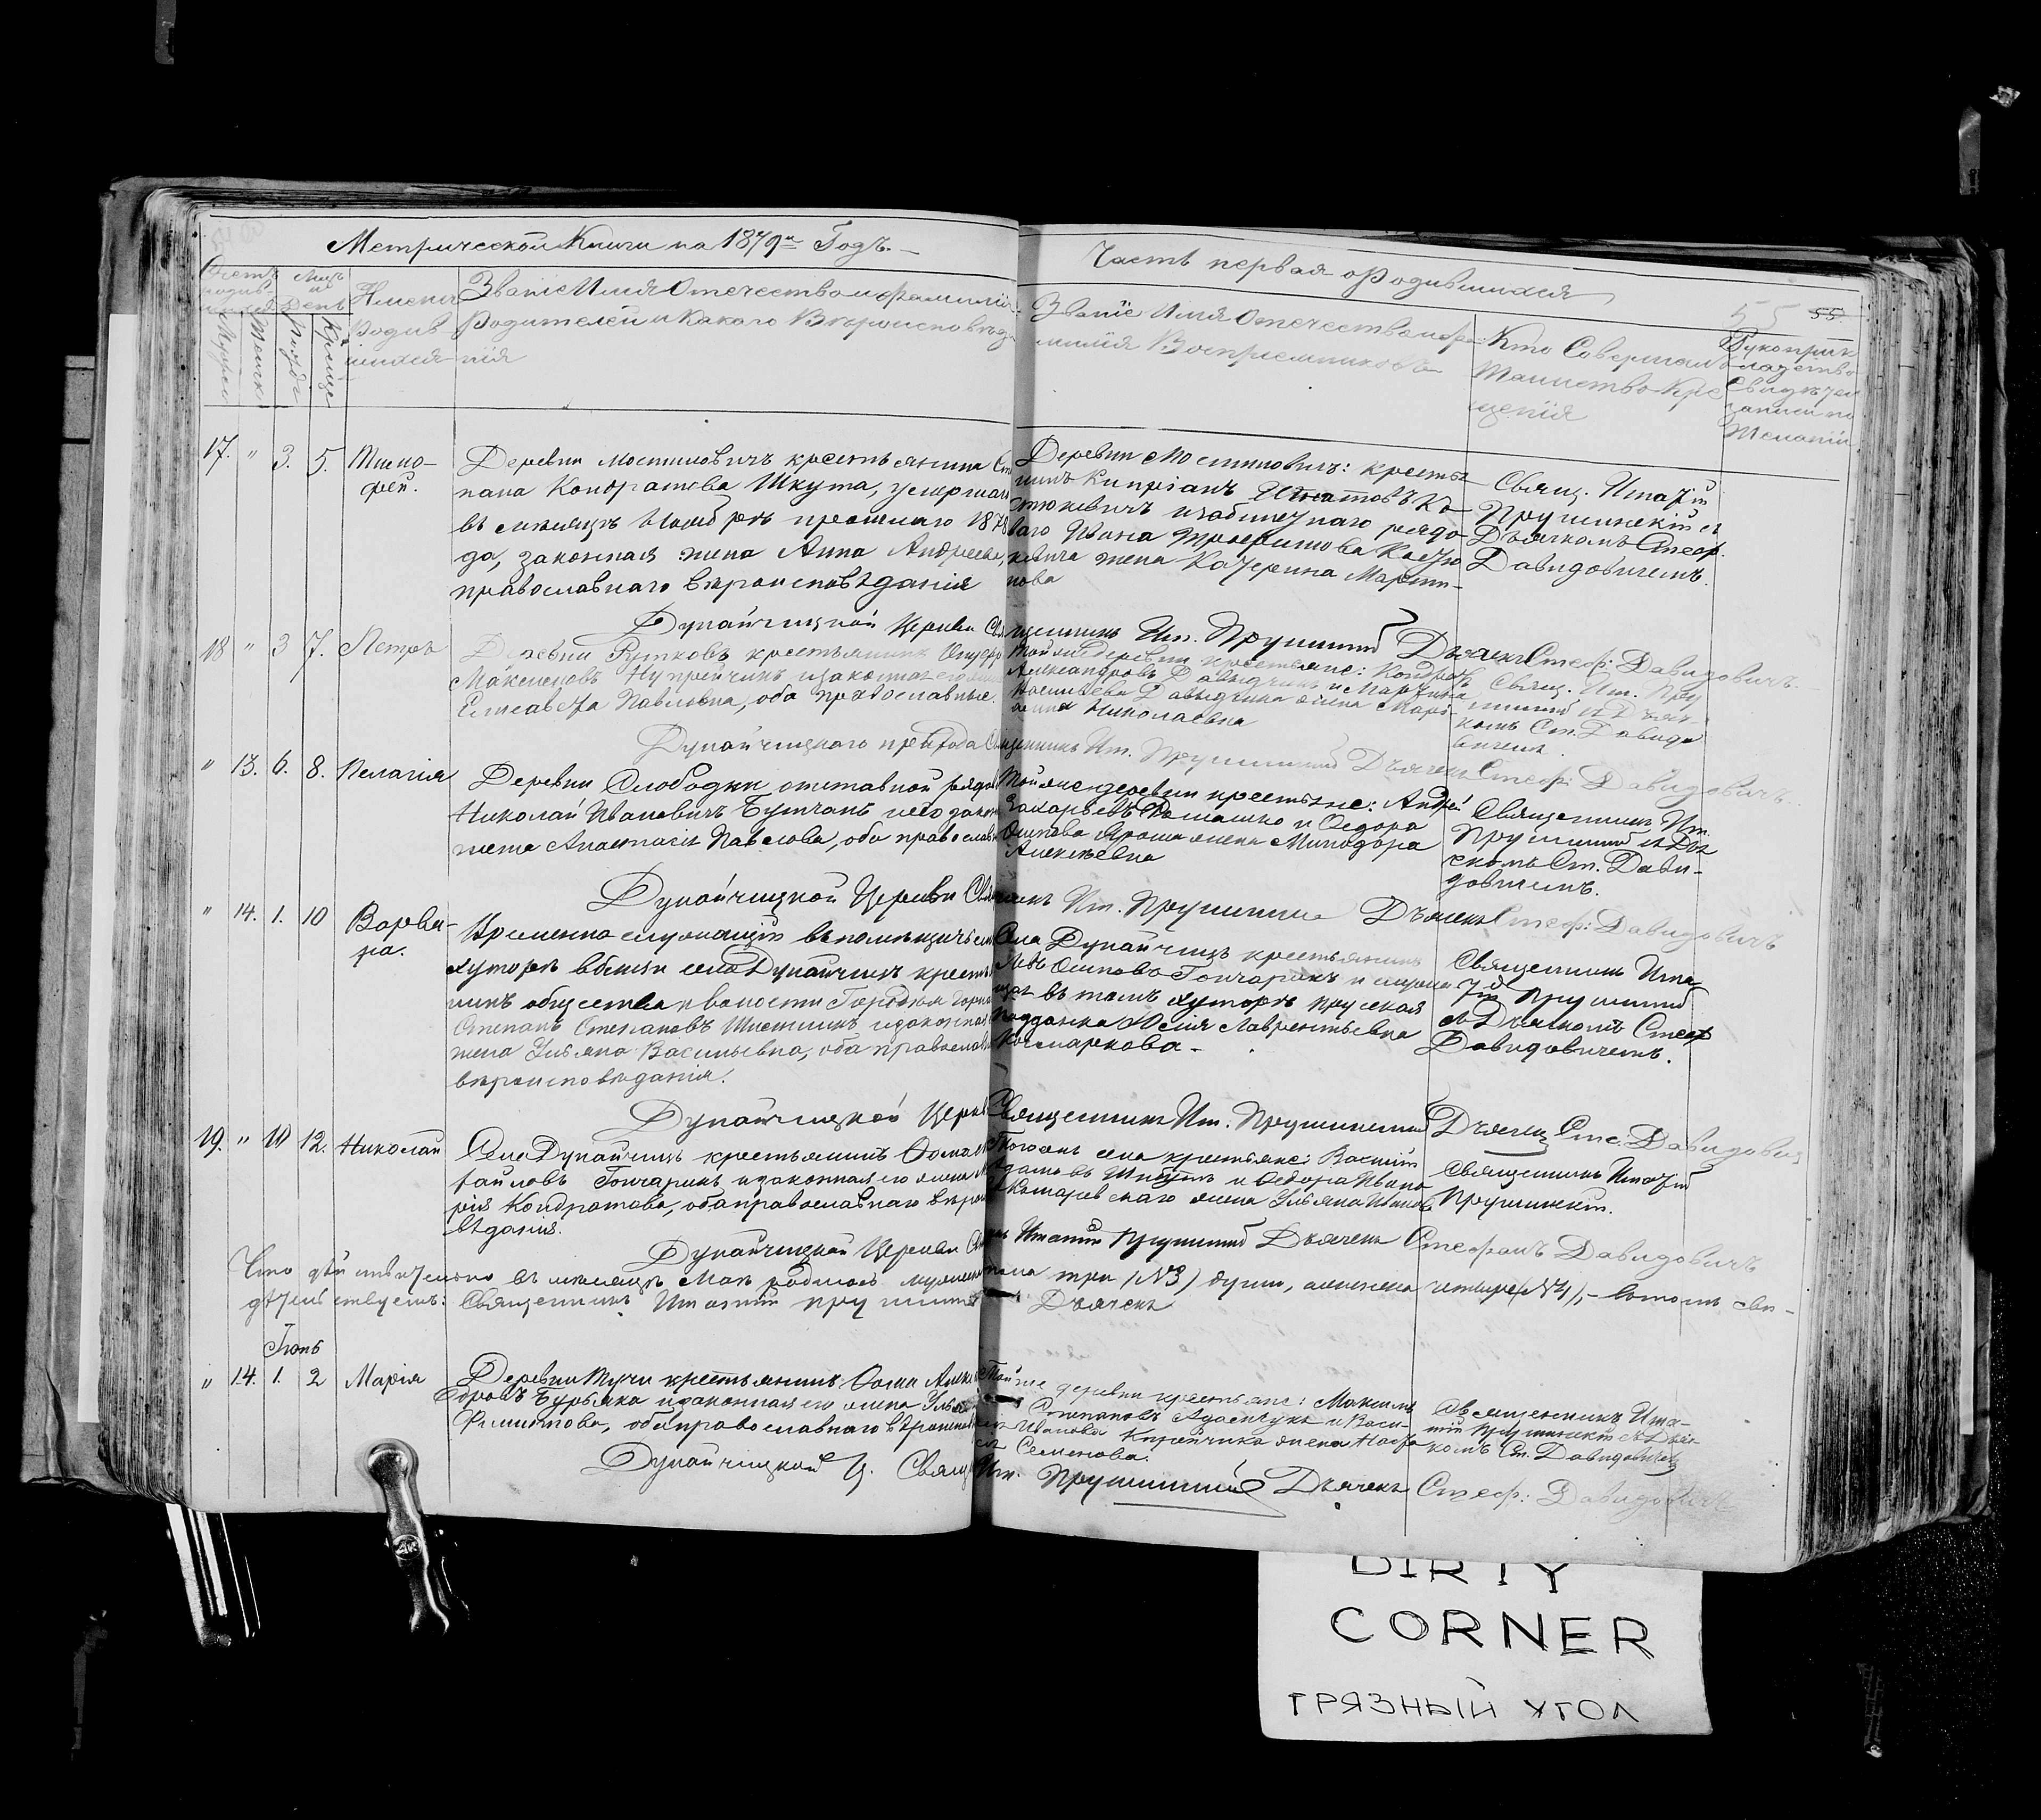 Метрической Книги на 1879й Годъ.
Часть первая о Родившихся
55 55.
Счетъ родив-
Мѣсъ и День
Имена Родив шихся
Званіе Имя Отечество и фамилія
Родителей и какого Вѣроисповѣд
нія
Званіе Имя Отечество и фа
милія Воспріемниковъ
Кто Совершалъ
Таинство Кре
щенія
Рукоприк
ладство
Свидѣтел
записи по
Желанію
17. " 3. 5. Тимо-
фей.
Деревни Мостиловичъ крестьянина Сте
пана Кондратова Шкута, умершаго
въ мѣсяцѣ Ноябрѣ прошлаго 1878
да, законная жена Анна Андреева,
православнаго вѣроисповѣданія
Деревни Мостиловичъ: крестья
нинъ Кипріанъ Игнатовъ Ко
стюкевичъ и
ваго Ивана
кевича жена Катерина Марти-
нова
Свящ. Игнатій
Прушинскій съ
Дьячкомъ Стеф.
Давидовичемъ.
Дунайчицкой Церкви Свя
щенникъ Иг. Прушинскій Дьячекъ Стеф: Давидовичъ.
18 " 3 7. Петръ
Деревни Рутковъ крестьянинъ
Максимовъ Купрейчикъ и законная его жена
Елисавета Павловна, оба православные.
Той же деревни крестьяне: Кондратъ
Александровъ Давыдчикъ и Мартина
Давыдчика жена Мари-
анна Николаевна
Свящ. Иг. Пру
шинскій съ Дьяч-
комъ Ст. Давидо
вичемъ.
Дунайчицкаго прихода Свя
щенникъ Иг. Прушинскій Дьячекъ Стеф: Давидовичъ.
" 13. 6. 8. Пелагія
Деревни Слободки отставной рядов
Николай Ивановичъ Бутчанъ и его закон
жена Анастасія Павлова, оба православн
Той же деревни крестьяне: Андрей
Захарьевъ Ромашко и Ѳедора
Осипова Яроша жена Минодора
Алексѣевна
Священникъ Иг.
Прушинскій съ Дья
чкомъ Ст. Дави-
довичемъ.
Дунайчицкой Церкви Свя
никъ Иг. Прушинскій Дьячекъ Стеф: Давидовичъ
" 14. 1. 10 Варва-
ра.
Временно служащій въ помѣщичьемъ
хуторѣ вблизи села Дунайчицъ крестья
нинъ общества и волости
Степанъ Степановъ и законная
жена Ульяна Васильевна, оба православн
вѣроисповѣданія.
Села Дунайчицъ крестьянинъ
Левъ Осиповъ Гончарикъ и служа
щая въ томъ хуторѣ прусская
подданка Юлія Лаврентьевна
Священникъ Игна
тій Прушинскій
съ Дьячкомъ Стеф
Давидовичемъ.
Дунайчицкой Церкви
Священникъ Иг. Прушинскій Дьячекъ Сте. Давидовичъ
19. " 10 12. Николай
Села Дунайчицъ крестьянинъ Ѳома Ми
хайловъ Гончарикъ и законная его жена Ма
рія Кондратова, оба православнаго вѣроисп
вѣданія.
Того же села крестьяне: Василій
Адамовъ и Ѳедора Ивано
Комаровскаго жена Ульяна
Священникъ Игнатій
Прушинскій.
Дунайчицкой Церкви Свя
никъ Игнатій Прушинскій Дьячекъ Стефанъ Давидовичъ
Что дѣйствительно въ мѣсяцѣ Маѣ родилось мужеска
пола три (№3) души, а женска четыре (№4), – въ томъ сви-
дѣтельствуетъ: Священникъ Игнатій Прушинскій
Дьячекъ
Іюнь
" 14. 1. 2 Марія
Деревни Тучи крестьянинъ Ѳома Алекса
ндровъ Бурьяка и законная его жена Ульяна
Филипова, оба православнаго вѣроиспов
Той же деревни крестьяне: Максимъ
Степановъ Адамчукъ и Васи-
лія Иванова Кирейчика жена Наста
сія Семенова.
Священникъ Игна-
тій Прушинскій съ Дьяч-
комъ Ст. Давидовичемъ
Дунайчицкой Ц. Свящ
Иг. Прушинскій Дьячекъ Стеф: Давидовичъ
DIRTY
CORNER
ГРЯЗНЫЙ УГОЛ